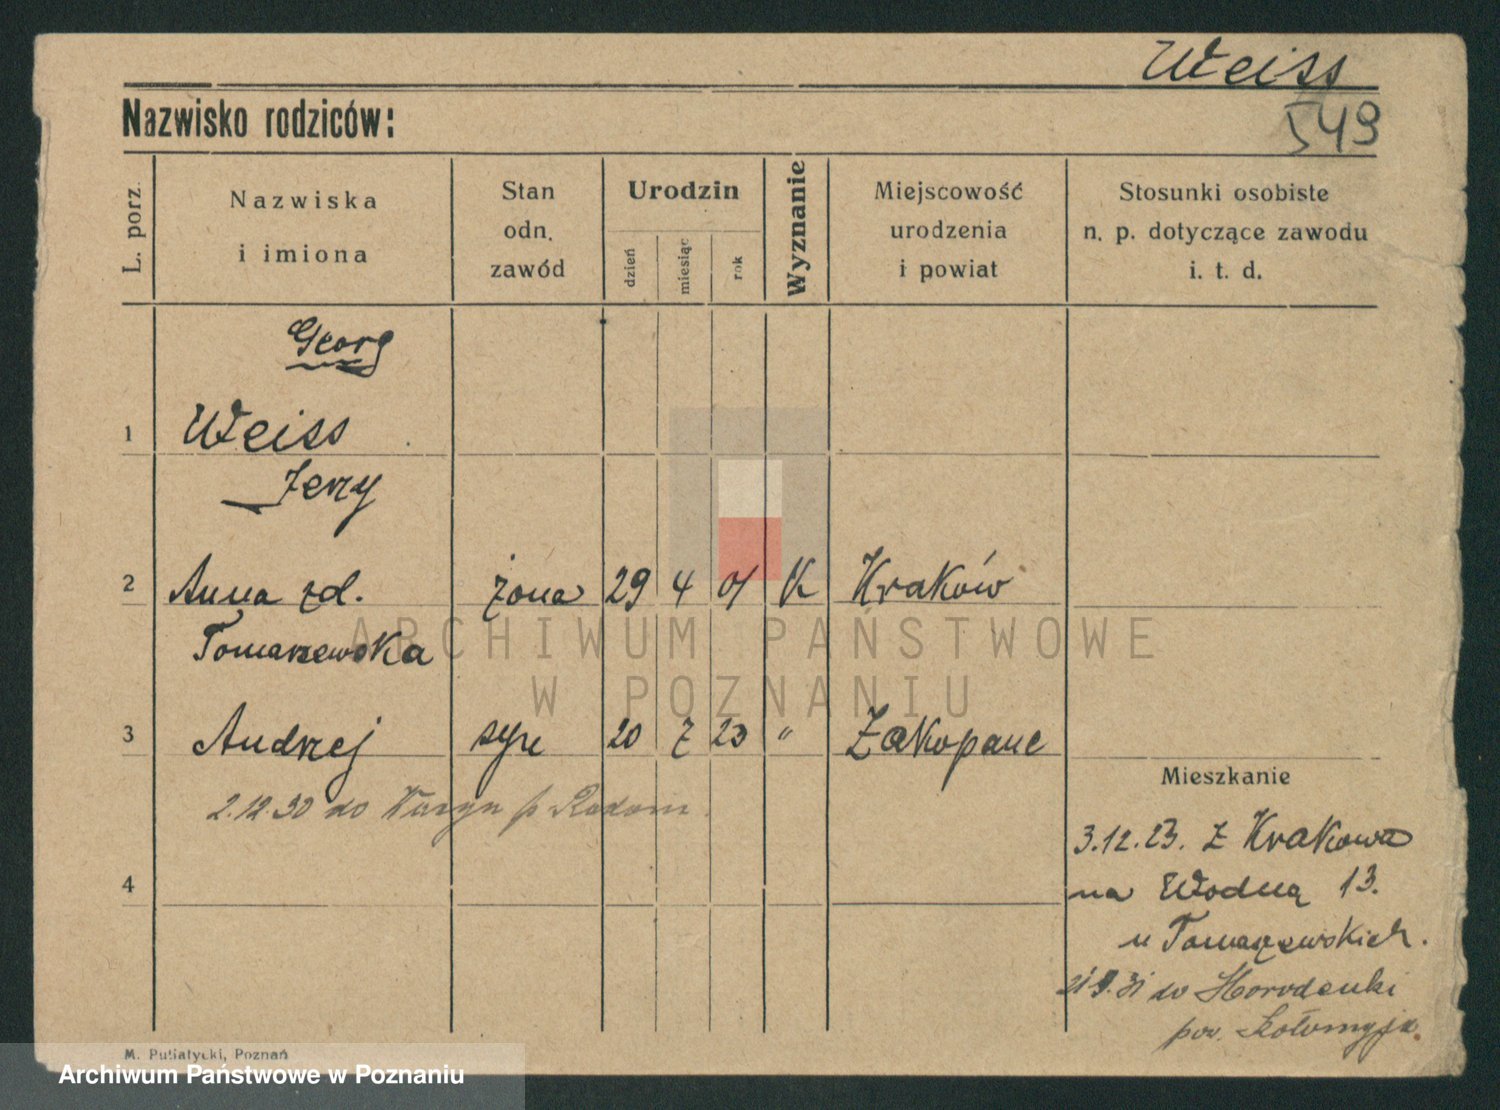 Weiss
Nazwisko rodziców:
549
L. porz.
Nazwiska
i imiona
Stan
odn.
zawód
Urodzin
dzień
miesiąc
rok
Wyznanie
Miejscowość
urodzenia
i powiat
Stosunki osobiste
n. p. dotyczące zawodu
i. t. d.
Georg
1 Weiss
Jerzy
2 Anna zd. żona 29 4 01 K Kraków
Tomaszewska
ARCHIWUM PAŃSTWOWE
W POZNANIU
3 Andrzej syn 20 7 23 " Zakopane
Mieszkanie
2.12.30 do p Radom.
3.12.23. z Krakowa
4
na Wodną 13.
u Tomaszewskich.
31 do Horodenki
pow. Kołomyja
M. Putiatycki, Poznań
Archiwum Państwowe w Poznaniu